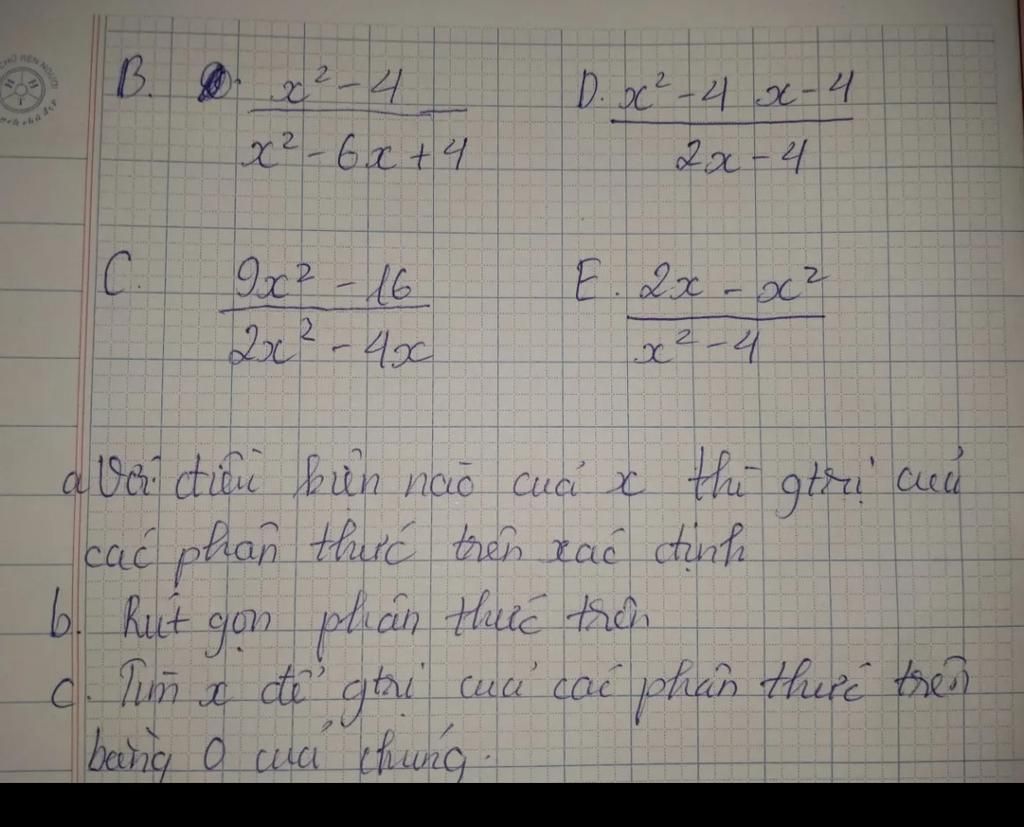 B. x² - 4 / x² - 6x + 4
D. x² - 4 x - 4 / 2x - 4
C. 9x² - 16 / 2x² - 4x
E. 2x - x² / x² - 4
a Với điều kiện nào của x thì gtrị của
các phân thức trên xác định
b. Rút gọn phân thức trên
c. Tìm x để gtrị của các phân thức trên
bằng 0 của chúng.